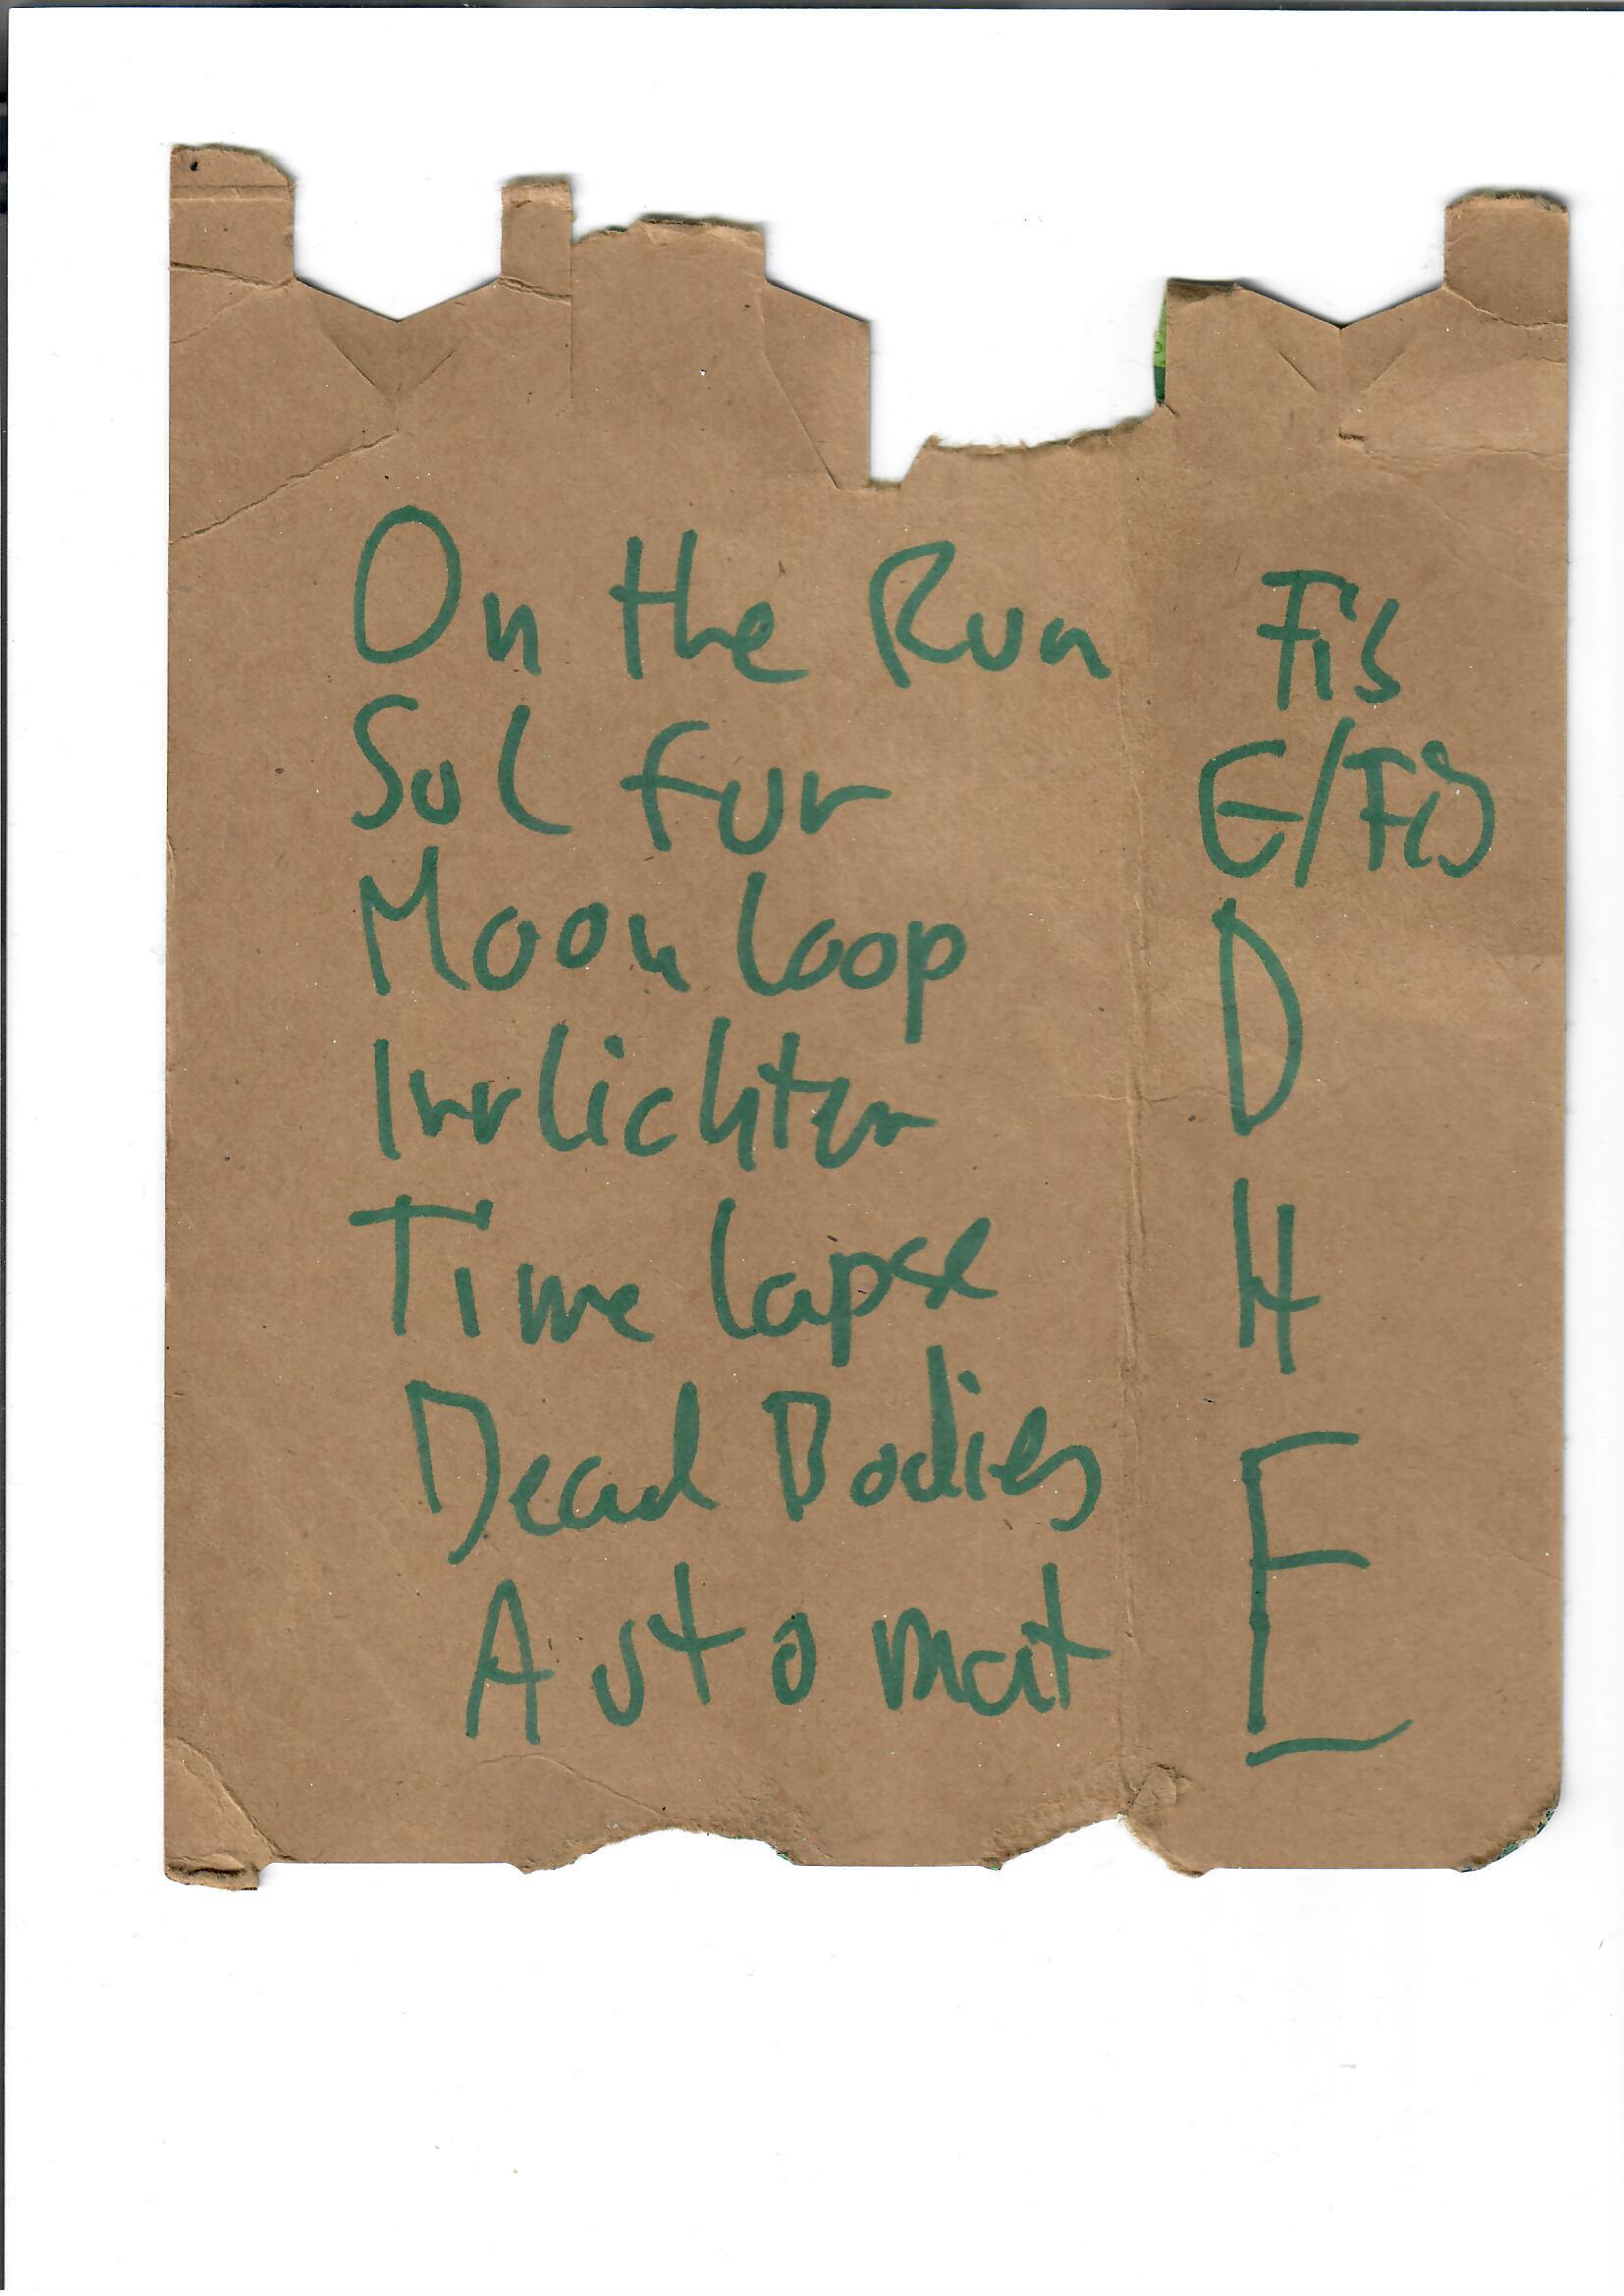 On the Run Fis
Sulfur E/Fis
Moonloop D
Irrlichter
Time lapse H
Dead Bodies E
Automat